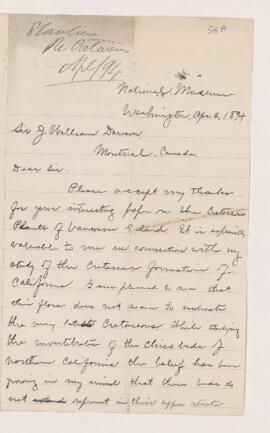 58A
Stanton
Re Cretaceous
Apl/94
National Museum
Washington, Apr. 2, 1894
Sir J. William Dawson,
Montreal, Canada
Dear Sir.
Please accept my thanks
for your interesting paper on the Cretaceous
Plants of Vancouver Island. It is especially
valuable to me in connection with my
study of the Cretaceous formations of
California. I am pleased to see that
this flora does not seem to indicate
the very latest Cretaceous. While studying
the invertebrates of the Chico beds of
northern California the belief has been
growing in my mind that these beds do
not extend represent in their upper strata